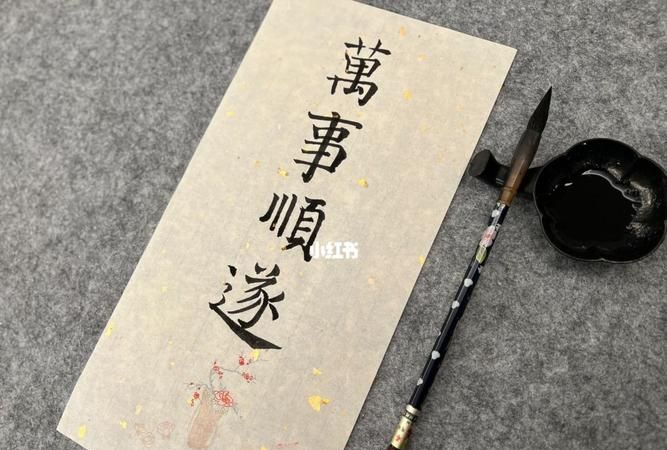 萬事順遂
小红书